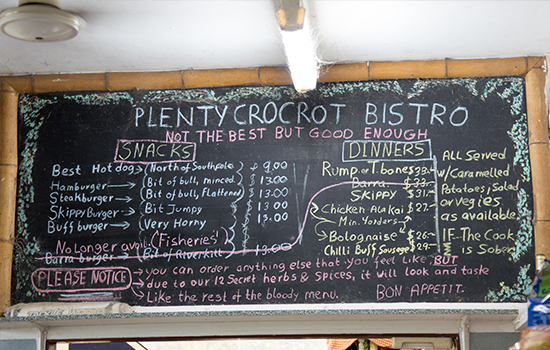 PLENTYCROCROT BISTRO
NOT THE BEST BUT GOOD ENOUGH
SNACKS
Best Hot dog (North of Southpole) $ 9.00
Hamburger (Bit of bull, minced) 13.00
Steakburger (Bit of bull, flattened) $ 13.00
Skippy Burger Bit Jumpy 13.00
Buff burger Very Horny 13.00
No Longer avail. (Fisheries!)
Barra burger (Bit of River kill) 13.00
DINNERS
Rump or T.bone $33.-
Barra $33.-
Skippy $31.-
Chicken Ala Kai $27.-
Min. Yonders
Bolognaise $26.-
Chilli Buff Sausage $29.-
All Served
w/Caramelled
Potatoes, Salad
or Vegies
as available.
IF The Cook
is Sober
PLEASE NOTICE you can order anything else that you feel like BUT
due to our 12 Secret herbs & Spices, it will look and taste
Like the rest of the bloody menu. BON APPETIT.